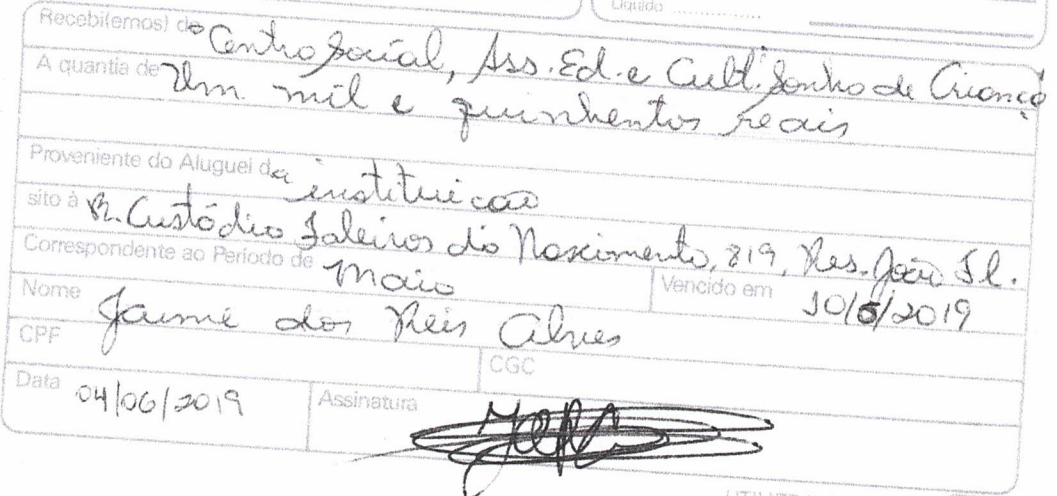 Líquido ..............
Recebi(emos) do Centro Social, Ass. Ed. e Cult. Sonho de Criança
A quantia de Um mil e quinhentos reais
Proveniente do Aluguel da instituicão
sito à R. Custódio Faleiros do Nascimento, 819, Res. João Fl.
Correspondente ao Período de Maio
Vencido em 10/6/2019
Nome Jaime dos Reis Alves
CPF
CGC
Data 04/06/2019
Assinatura